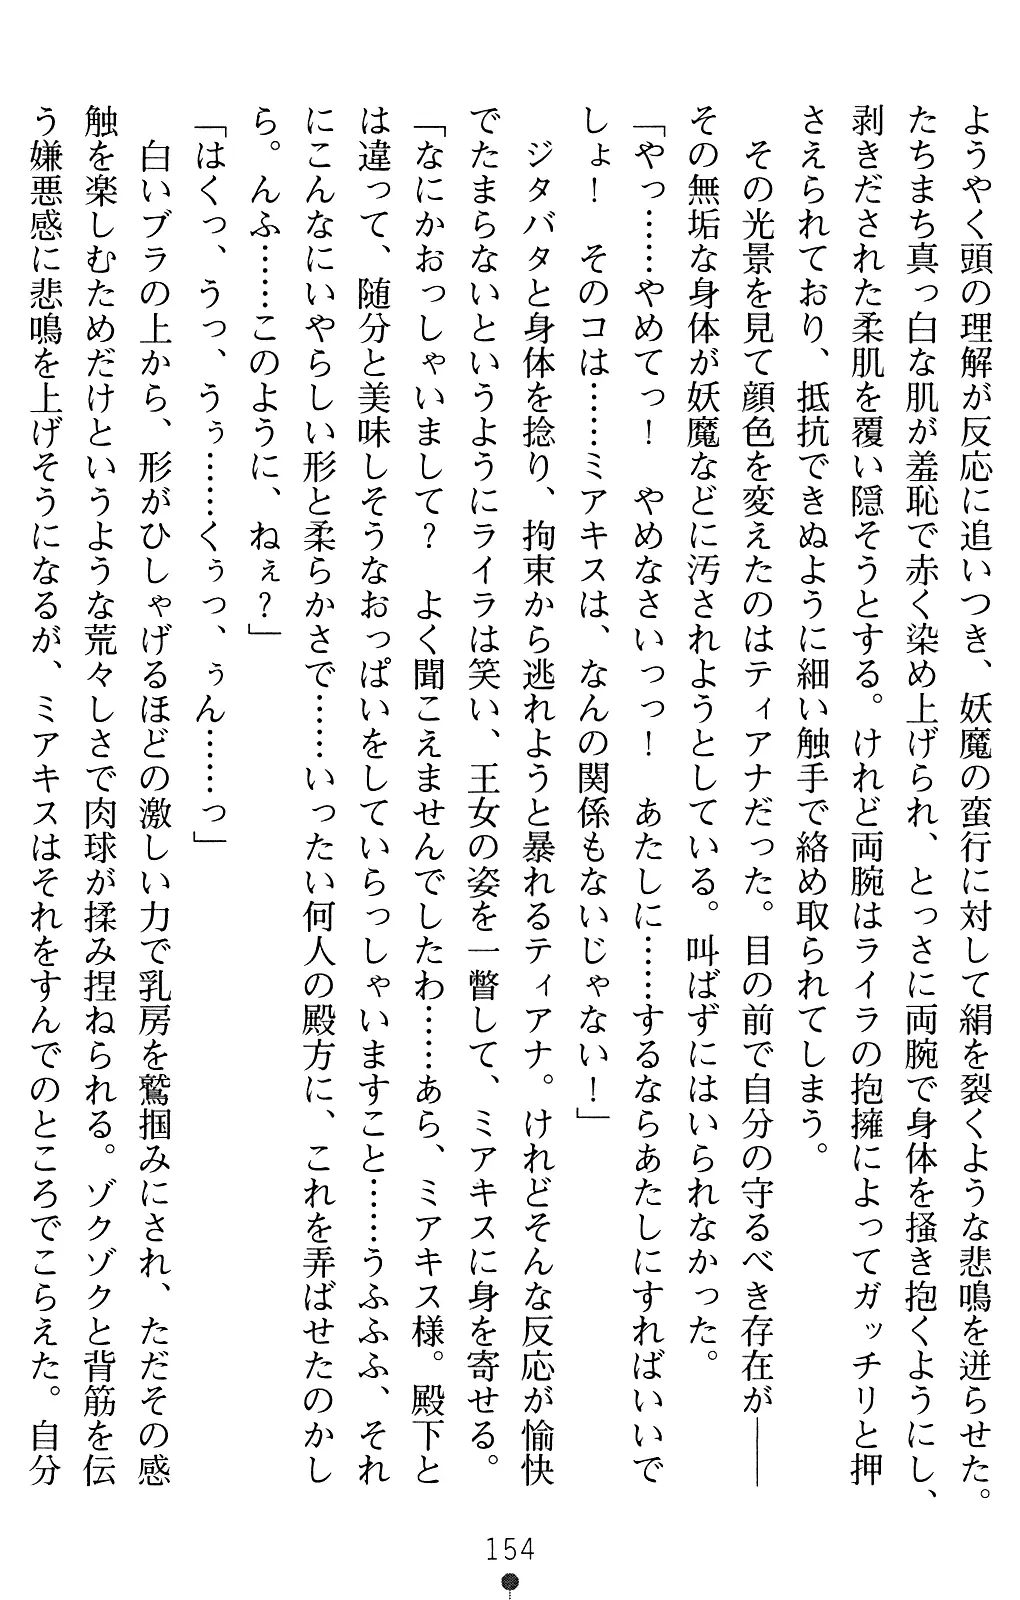 ようやく頭の理解が反応に追いつき、妖魔の蛮行に対して絹を裂くような悲鳴を迸らせた。
たちまち真っ白な肌が羞恥で赤く染め上げられ、とっさに両腕で身体を掻き抱くようにし、
剥きだされた柔肌を覆い隠そうとする。けれど両腕はライラの抱擁によってガッチリと押
さえられており、抵抗できぬように細い触手で絡め取られてしまう。
　その光景を見て顔色を変えたのはティアナだった。目の前で自分の守るべき存在が――
その無垢な身体が妖魔などに汚されようとしている。叫ばずにはいられなかった。
「やっ……やめてっ！　やめなさいっっ！　あたしに……するならあたしにすればいいで
しょ！　そのコは……ミアキスは、なんの関係もないじゃない！」
　ジタバタと身体を捻り、拘束から逃れようと暴れるティアナ。けれどそんな反応が愉快
でたまらないというようにライラは笑い、王女の姿を一瞥して、ミアキスに身を寄せる。
「なにかおっしゃいまして？　よく聞こえませんでしたわ……あら、ミアキス様。殿下と
は違って、随分と美味しそうなおっぱいをしていらっしゃいますこと……うふふふ、それ
にこんなにいやらしい形と柔らかさで……いったい何人の殿方に、これを弄ばせたのかし
ら。んふ……このように、ねぇ？」
「はくっ、うっ、うぅ……くぅっ、ぅん……っ」
　白いブラの上から、形がひしゃげるほどの激しい力で乳房を鷲掴みにされ、ただその感
触を楽しむためだけというような荒々しさで肉球が揉み捏ねられる。ゾクゾクと背筋を伝
う嫌悪感に悲鳴を上げそうになるが、ミアキスはそれをすんでのところでこらえた。自分
154